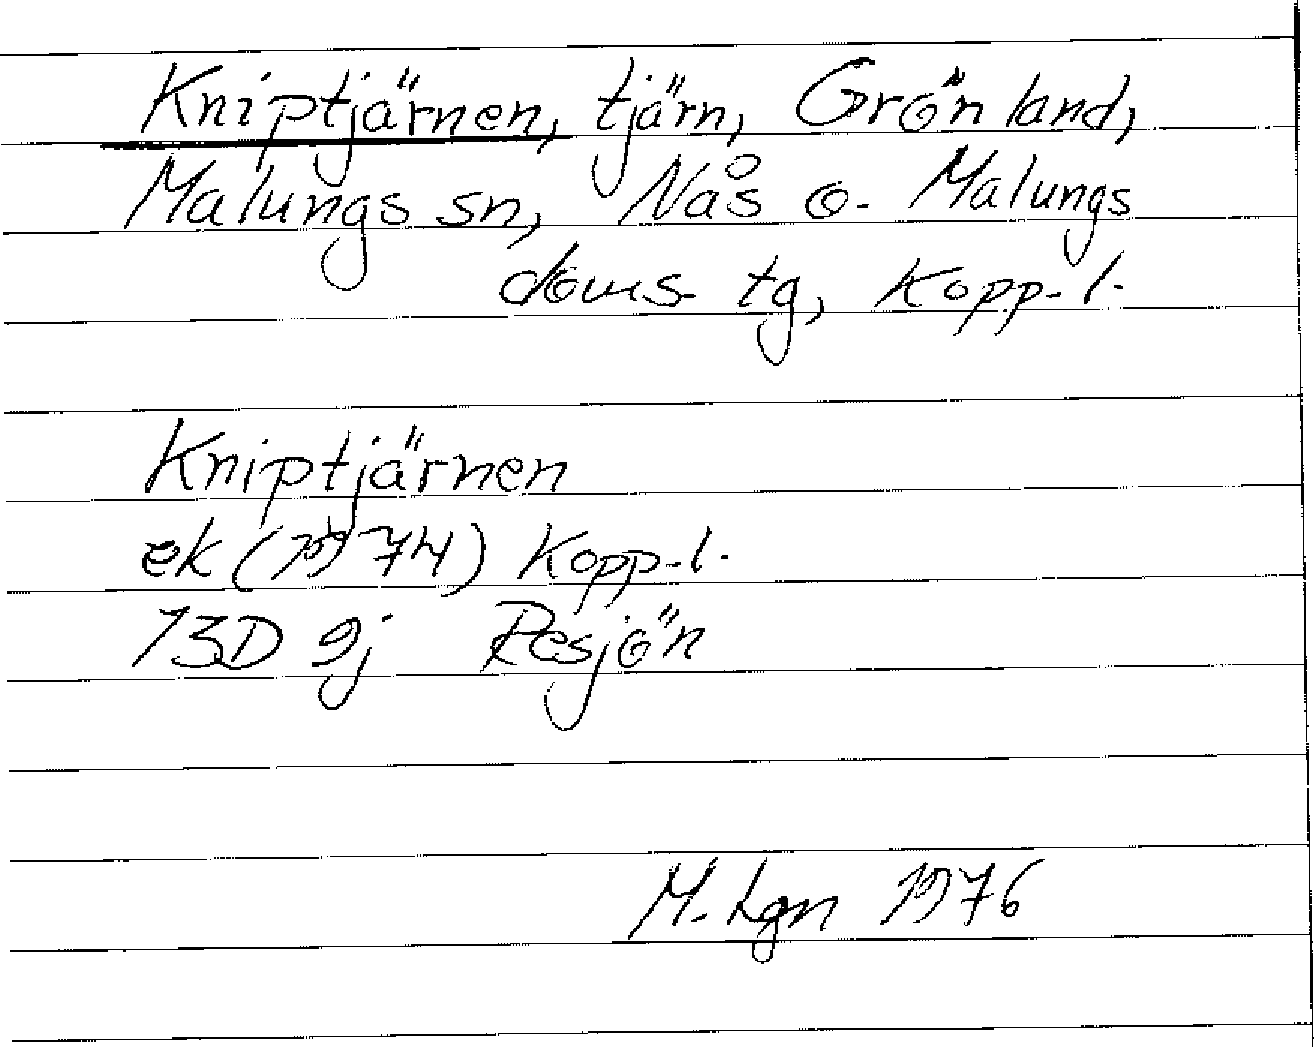 Kniptjärnen, tjärn, Grönland,
Malungs sn, Nås o. Malungs
doms. tg, Kopp. l.
Kniptjärnen
ek (1974) Kopp. l.
13D 9j Resjön
M. Lgn 1976